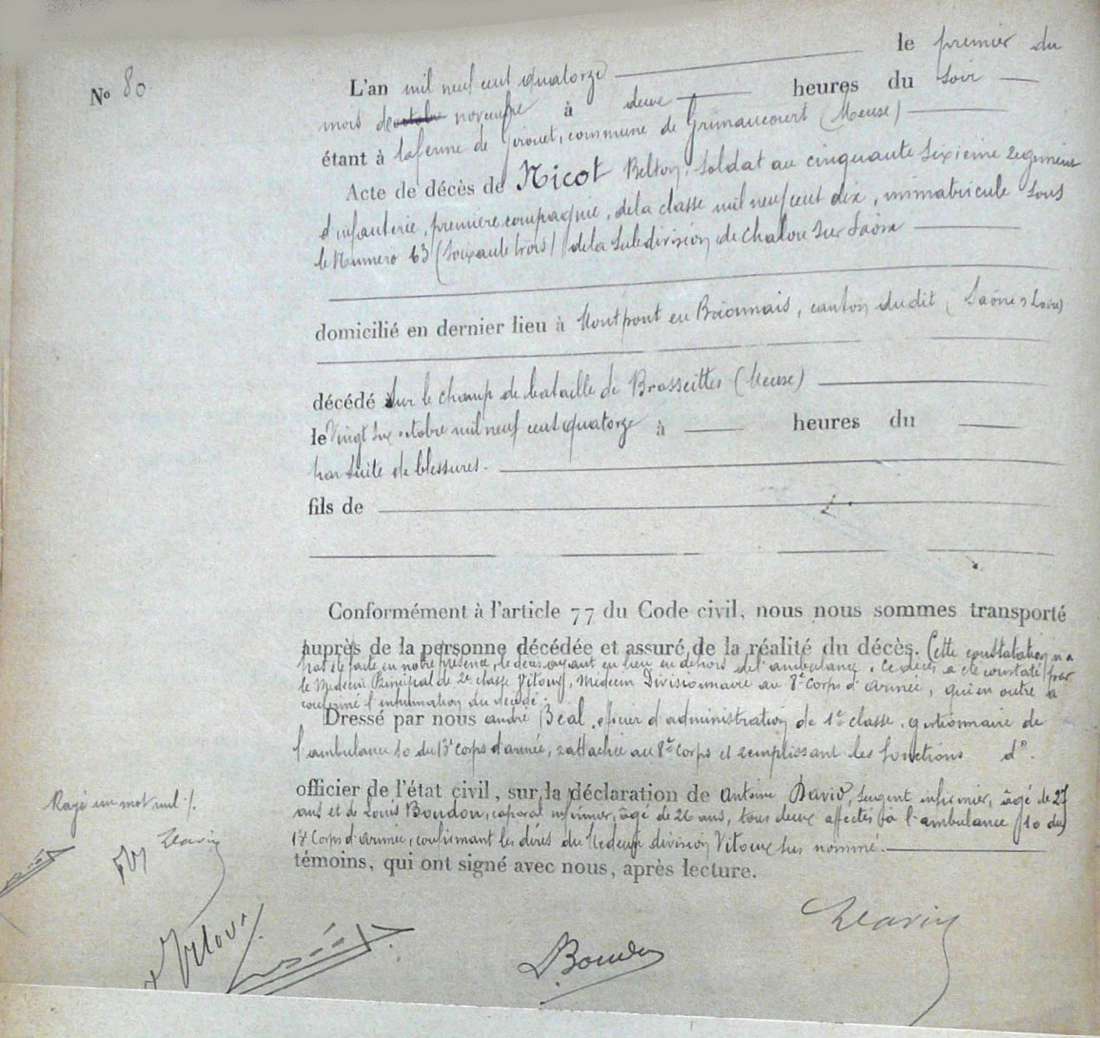 N° 80
L'an mil neuf cent quatorze le premier du
mois de octobre novembre à deux heures du soir
étant à la ferme de Girouet, commune de Grimaucourt (Meuse)
Acte de décès de Nicot Belton, soldat au cinquante sixième Regiment
d'infanterie, première compagnie, de la classe mil neuf cent dix, immatricule sous
le Numero 63 (soixante trois) de la subdivision de Chalon sur Saône
domicilié en dernier lieu à Montpont en Brionnais, canton dudit (Saône & Loire)
décédé sur le champ de bataille de Brasseittes (Meuse)
le Vingt six octobre mil neuf cent quatorze à heures du
par suite de blessures.
fils de
Conformément à l'article 77 du Code civil, nous nous sommes transporté
auprès de la personne décédée et assuré de la réalité du décès. Cette constatation n'a
pas été faite en notre présence, le décès ayant eu lieu en dehors de l'ambulance. Ce décès a été constaté par
le Médecin Principal de 2e classe Vitoux, Médecin Divisionnaire au 8e Corps d'armée, qui en outre a
confirmé l'inhumation du décédé.
Dressé par nous andré Béal, officier d'administration de 1e classe, gestionnaire de
l'ambulance 10 du 13e Corps d'armée, rattachée au 8e Corps et remplissant les fonctions d'
officier de l'état civil, sur la déclaration de Antoine David, sergent infirmier, âgé de 27
ans et de Louis Boudon, caporal infirmier, âgé de 26 ans, tous deux affectés à l'ambulance 10 du
13e Corps d'Armée, confirmant les dires du Medecin division Vitoux sus nommé.
témoins, qui ont signé avec nous, après lecture.
Rayé un mot nul
Boudon